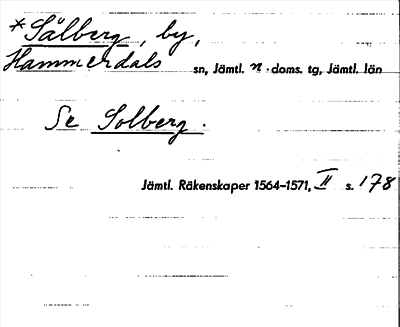 *Sålberg, by,
Hammerdals sn, Jämtl. n. doms. tg, Jämtl. län
Se Solberg.
Jämtl. Räkenskaper 1564–1571, II s. 178